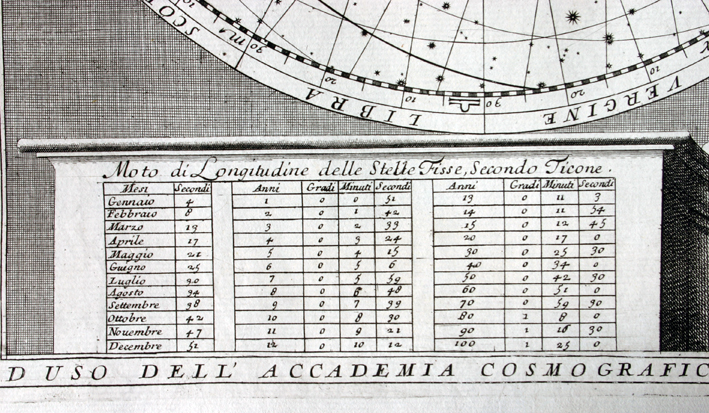 SCO
m 30 20 10 30 20 10
LIBRA VERGINE
Moto di Longitudine delle Stelle Fisse, Secondo Ticone.
Mesi Secondi Anni Gradi Minuti Secondi Anni Gradi Minuti Secondi
Gennaio 4 1 0 0 51 13 0 11 3
Febbraio 8 2 0 1 42 14 0 11 54
Marzo 13 3 0 2 33 15 0 12 45
Aprile 17 4 0 3 24 20 0 17 0
Maggio 21 5 0 4 15 30 0 25 30
Guigno 25 6 0 5 6 40 0 34 0
Luglio 30 7 0 5 59 50 0 42 30
Agosto 34 8 0 6 48 60 0 51 0
Settembre 38 9 0 7 39 70 0 59 30
Ottobre 42 10 0 8 30 80 1 8 0
Nouembre 47 11 0 9 21 90 1 16 30
Decembre 51 12 0 10 12 100 1 25 0
D USO DELL' ACCADEMIA COSMOGRAFIC